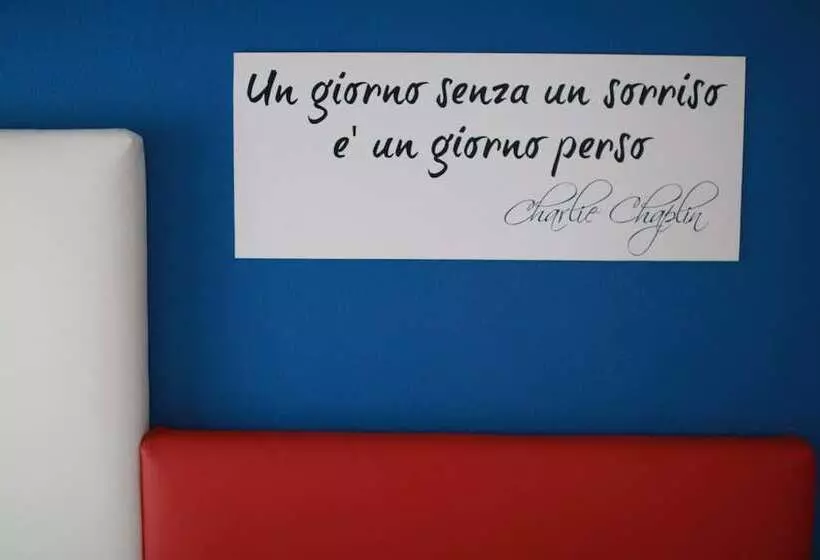 Un giorno senza un sorriso
e' un giorno perso
Charlie Chaplin